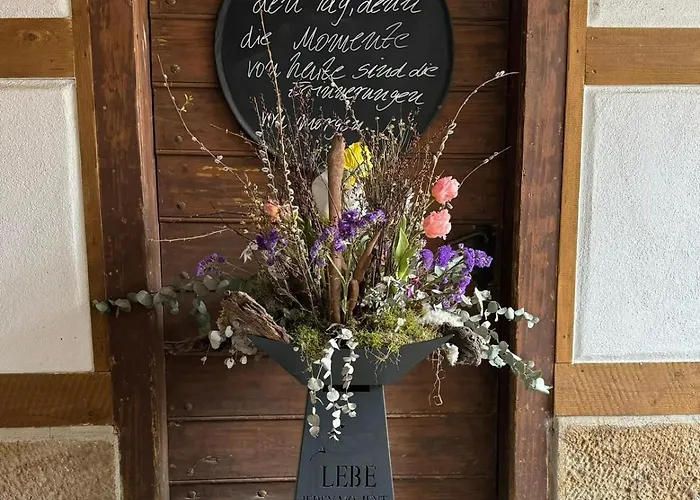 den Tag, denn
die Momente
von heute sind die
Erinnerungen
von morgen
LEBE
JEDEN MOMENT